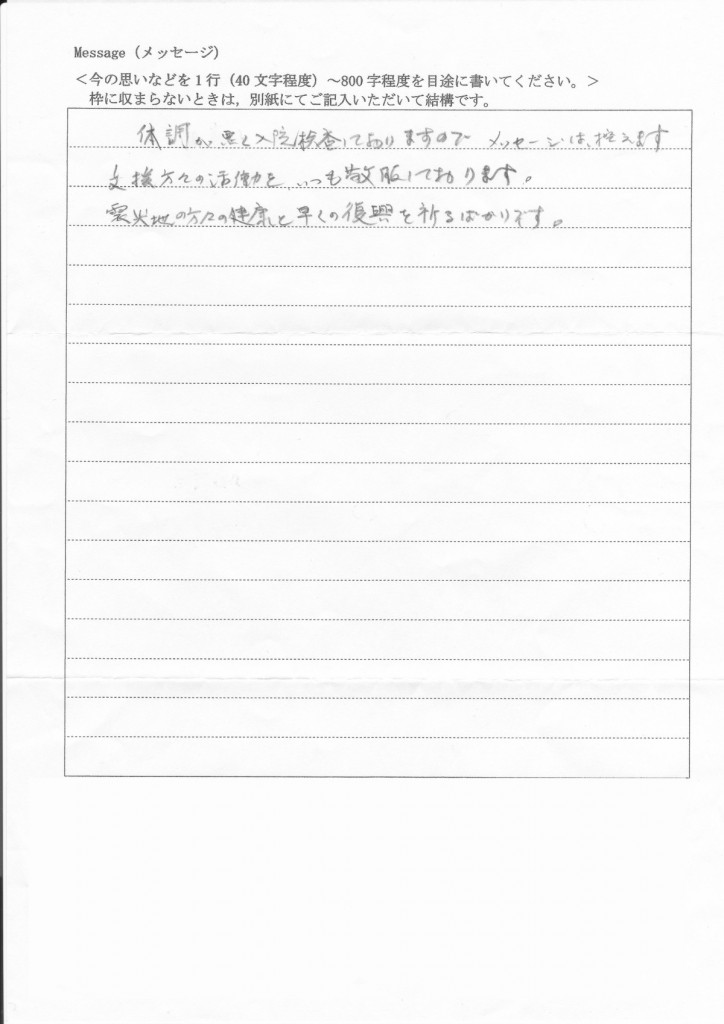 Message（メッセージ）
＜今の思いなどを１行（40文字程度）～800字程度を目途に書いてください。＞
枠に収まらないときは，別紙にてご記入いただいて結構です。
体調が悪く入院検査しておりますので メッセージは、控えます
支援方々の活動を、いつも敬服しております。
震災地の方々の健康と早くの復興を祈るばかりです。